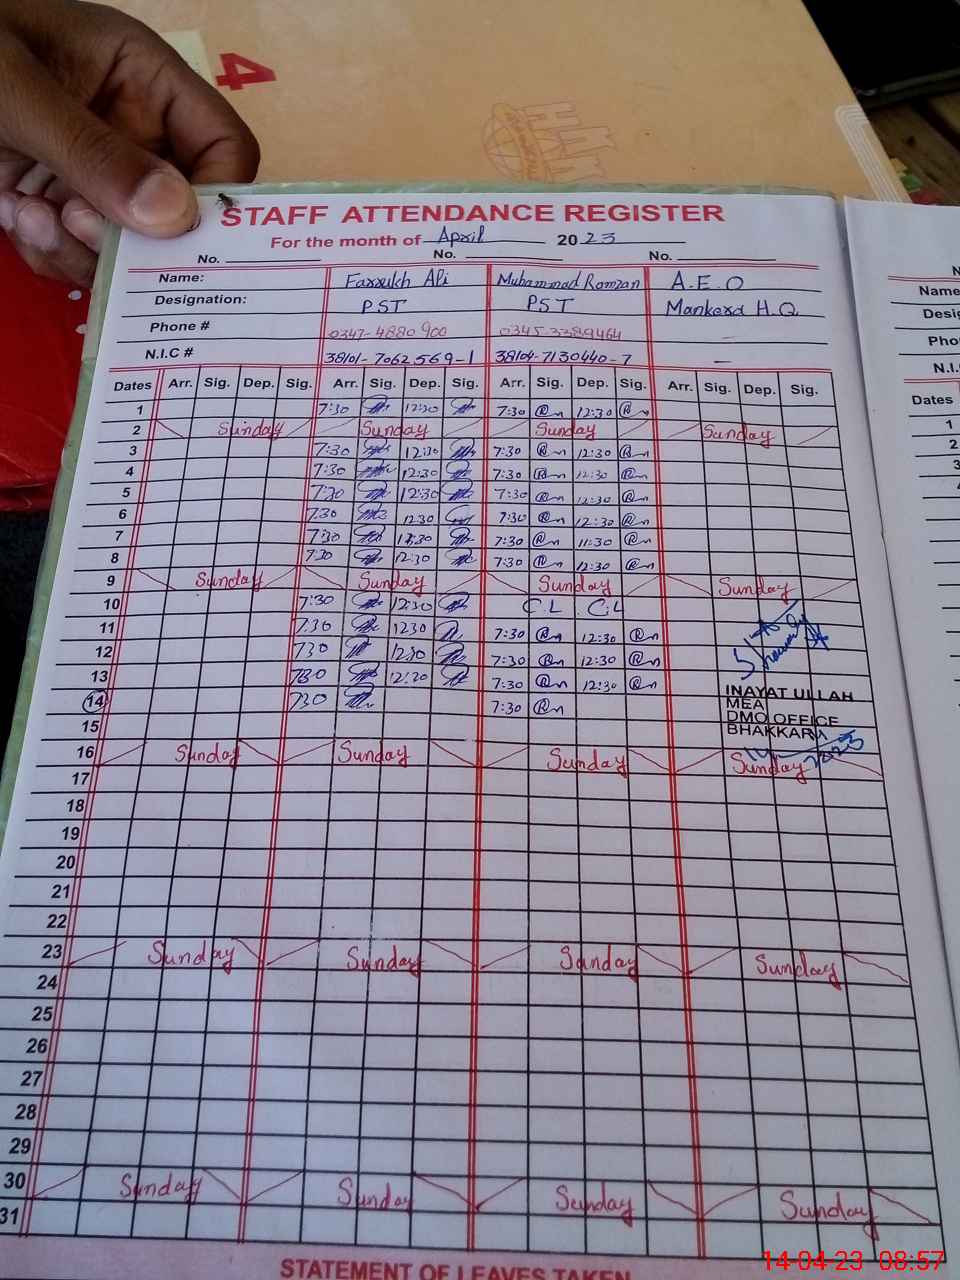 4
STAFF ATTENDANCE REGISTER
For the month of April 2023
No. No. No.
Name: Farrukh Ali Muhammad Romzan A.E.O
Designation: PST PST Mankera H.Q
Phone # 0347-4880900 0345-3389464 –
N.I.C # 38101-7062569-1 38104-7130440-7 –
Dates Arr. Sig. Dep. Sig. Arr. Sig. Dep. Sig. Arr. Sig. Dep. Sig. Arr. Sig. Dep. Sig.
1 7:30 12:30 7:30 12:30
2 Sunday Sunday Sunday Sunday
3 7:30 12:30 7:30 12:30
4 7:30 12:30 7:30 12:30
5 7:30 12:30 7:30 12:30
6 7:30 12:30 7:30 12:30
7 7:30 7:30 11:30
8 7:30 12:30 7:30 12:30
9 Sunday Sunday Sunday Sunday
10 7:30 12:30 C.L C.L
11 7:30 1230 7:30 12:30
12 730 12:30 7:30 12:30
13 730 12:30 7:30 12:30
INAYAT ULLAH
14 730 7:30
MEA
DMO OFFICE
15
BHAKKAR
16 Sunday Sunday Sunday Sunday
17
18
19
20
21
22
23 Sunday Sunday Sunday Sunday
24
25
26
27
28
29
30 Sunday Sunday Sunday Sunday
31
STATEMENT OF LEAVES TAKEN
Name
Desig
Pho
N.I.C
Dates
1
2
3
14-04-23 08:57